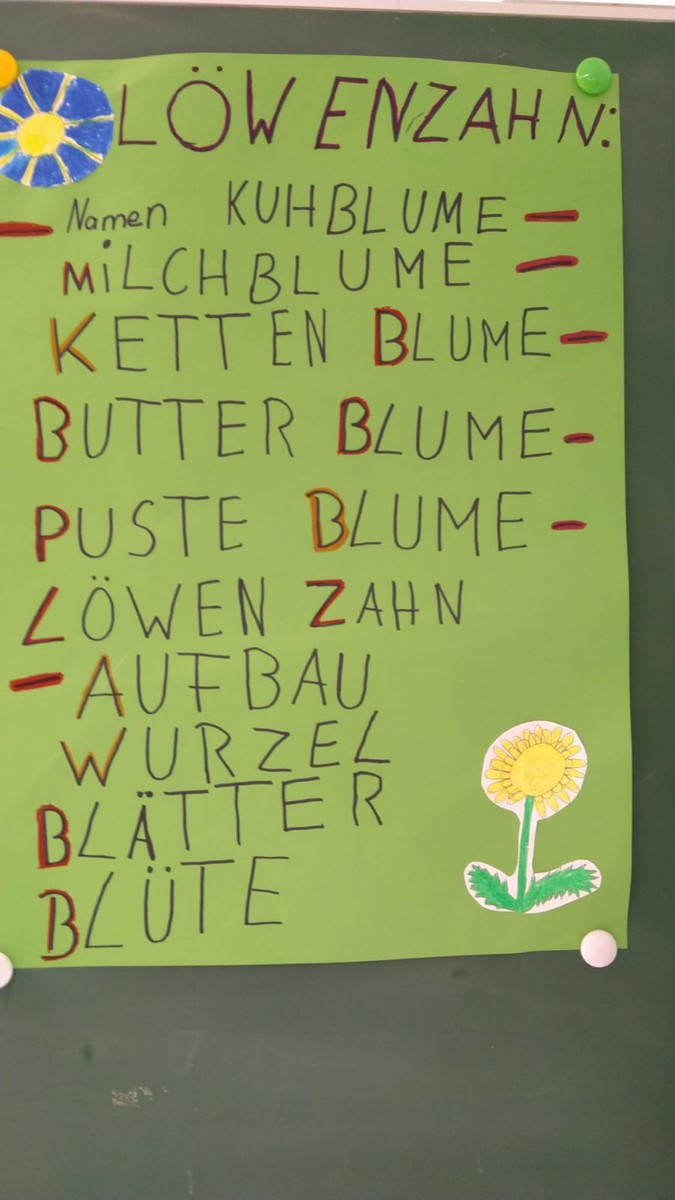 LÖWENZAHN:
– Namen KUHBLUME –
MiLCHBLUME –
KETTEN BLUME –
BUTTER BLUME –
PUSTE BLUME –
LÖWEN ZAHN
– AUFBAU
WURZEL
BLÄTTER
BLÜTE